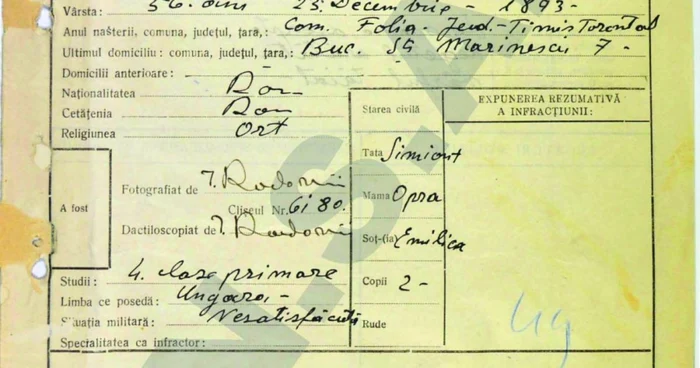 Vârsta: 56. ani 25 Decembrie - 1893 -
Anul nașterii, comuna, județul, țara,: Com. Folia. Jud.-Timis Torontal
Ultimul domiciliu: comuna, județul, țara,: Buc. Marinescu 7 -
Domicilii anterioare:
Naționalitatea Rom
Cetățenia Rom
Religiunea Ort
A fost
Fotografiat de
Clișeul Nr. 6180.
Dactiloscopiat de
Studii: 4. clase primare
Limba ce posedă: Ungara. -
Situația militară: Nesatisfăcută
Specialitatea ca infractor:
Starea civilă
Tata Simion
Mama Opra
Soț-(ia) Emilica
Copii 2 -
Rude
EXPUNEREA REZUMATIVĂ
A INFRACȚIUNII: